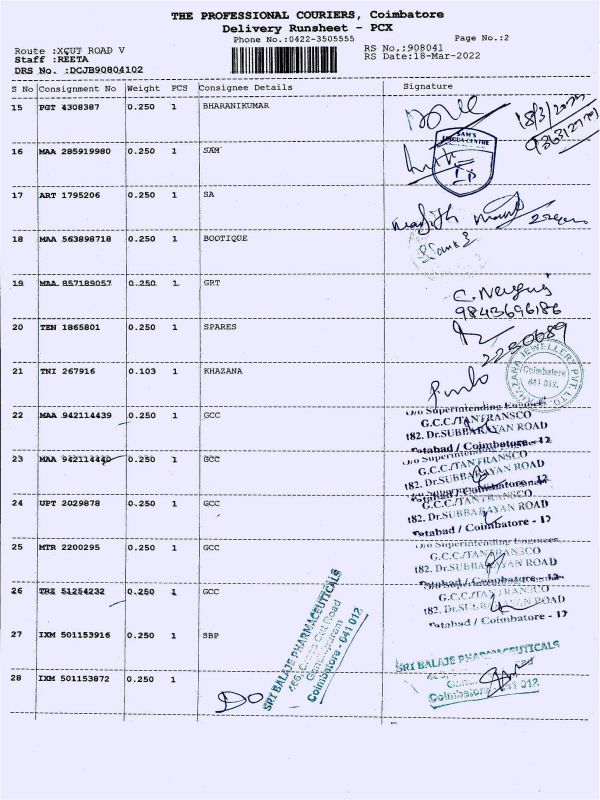 THE PROFESSIONAL COURIERS, Coimbatore
Delivery Runsheet - PCX
Phone No.:0422-3505555
Page No.:2
Route :XCUT ROAD V
Staff :REETA
DRS No. :DCJB90804102
RS No.:908041
RS Date:18-Mar-2022
S No Consignment No Weight PCS Consignee Details Signature
15 PGT 4308387 0.250 1 BHARANIKUMAR
18/3/2022
16 MAA 285919980 0.250 1 SAM
SAM'S
CENTRE
17 ART 1795206 0.250 1 SA
18 MAA 563898718 0.250 1 BOOTIQUE
19 MAA 857189057 0.250 1 GRT
9843696186
20 TEN 1865801 0.250 1 SPARES
2230689
21 TNI 267916 0.103 1 KHAZANA
KHAZANA JEWELLERY PVT. LTD.
Coimbatore
641 012.
22 MAA 942114439 0.250 1 GCC
O/o Superintending Engineer
G.C.C./TANTRANSCO
182. Dr.SUBBARAYAN ROAD
Tatabad / Coimbatore - 12
23 MAA 942114440 0.250 1 GCC
O/o Superintending Engineer
G.C.C./TANTRANSCO
182. Dr.SUBBARAYAN ROAD
Tatabad / Coimbatore - 12
24 UPT 2029878 0.250 1 GCC
G.C.C./TANTRANSCO
182. Dr.SUBBARAYAN ROAD
Tatabad / Coimbatore - 12
25 MTR 2200295 0.250 1 GCC
O/o Superintending Engineer
G.C.C./TANTRANSCO
182. Dr.SUBBARAYAN ROAD
Tatabad / Coimbatore - 12
26 TRZ 51254232 0.250 1 GCC
G.C.C./TANTRANSCO
182. Dr.SUBBARAYAN ROAD
Tatabad / Coimbatore - 12
27 IXM 501153916 0.250 1 SBP
SRI BALAJE PHARMACEUTICALS
Cut Road
Coimbatore - 641 012
28 IXM 501153872 0.250 1
Do
SRI BALAJE PHARMACEUTICALS
Coimbatore - 641 012